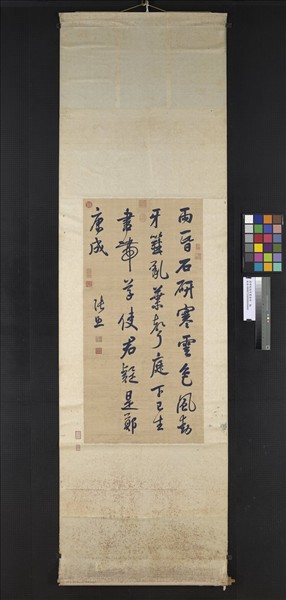 雨昏石研寒雲色風動
牙籤亂葉聲庭下已生
書帶草使君疑是鄭
康成
張照